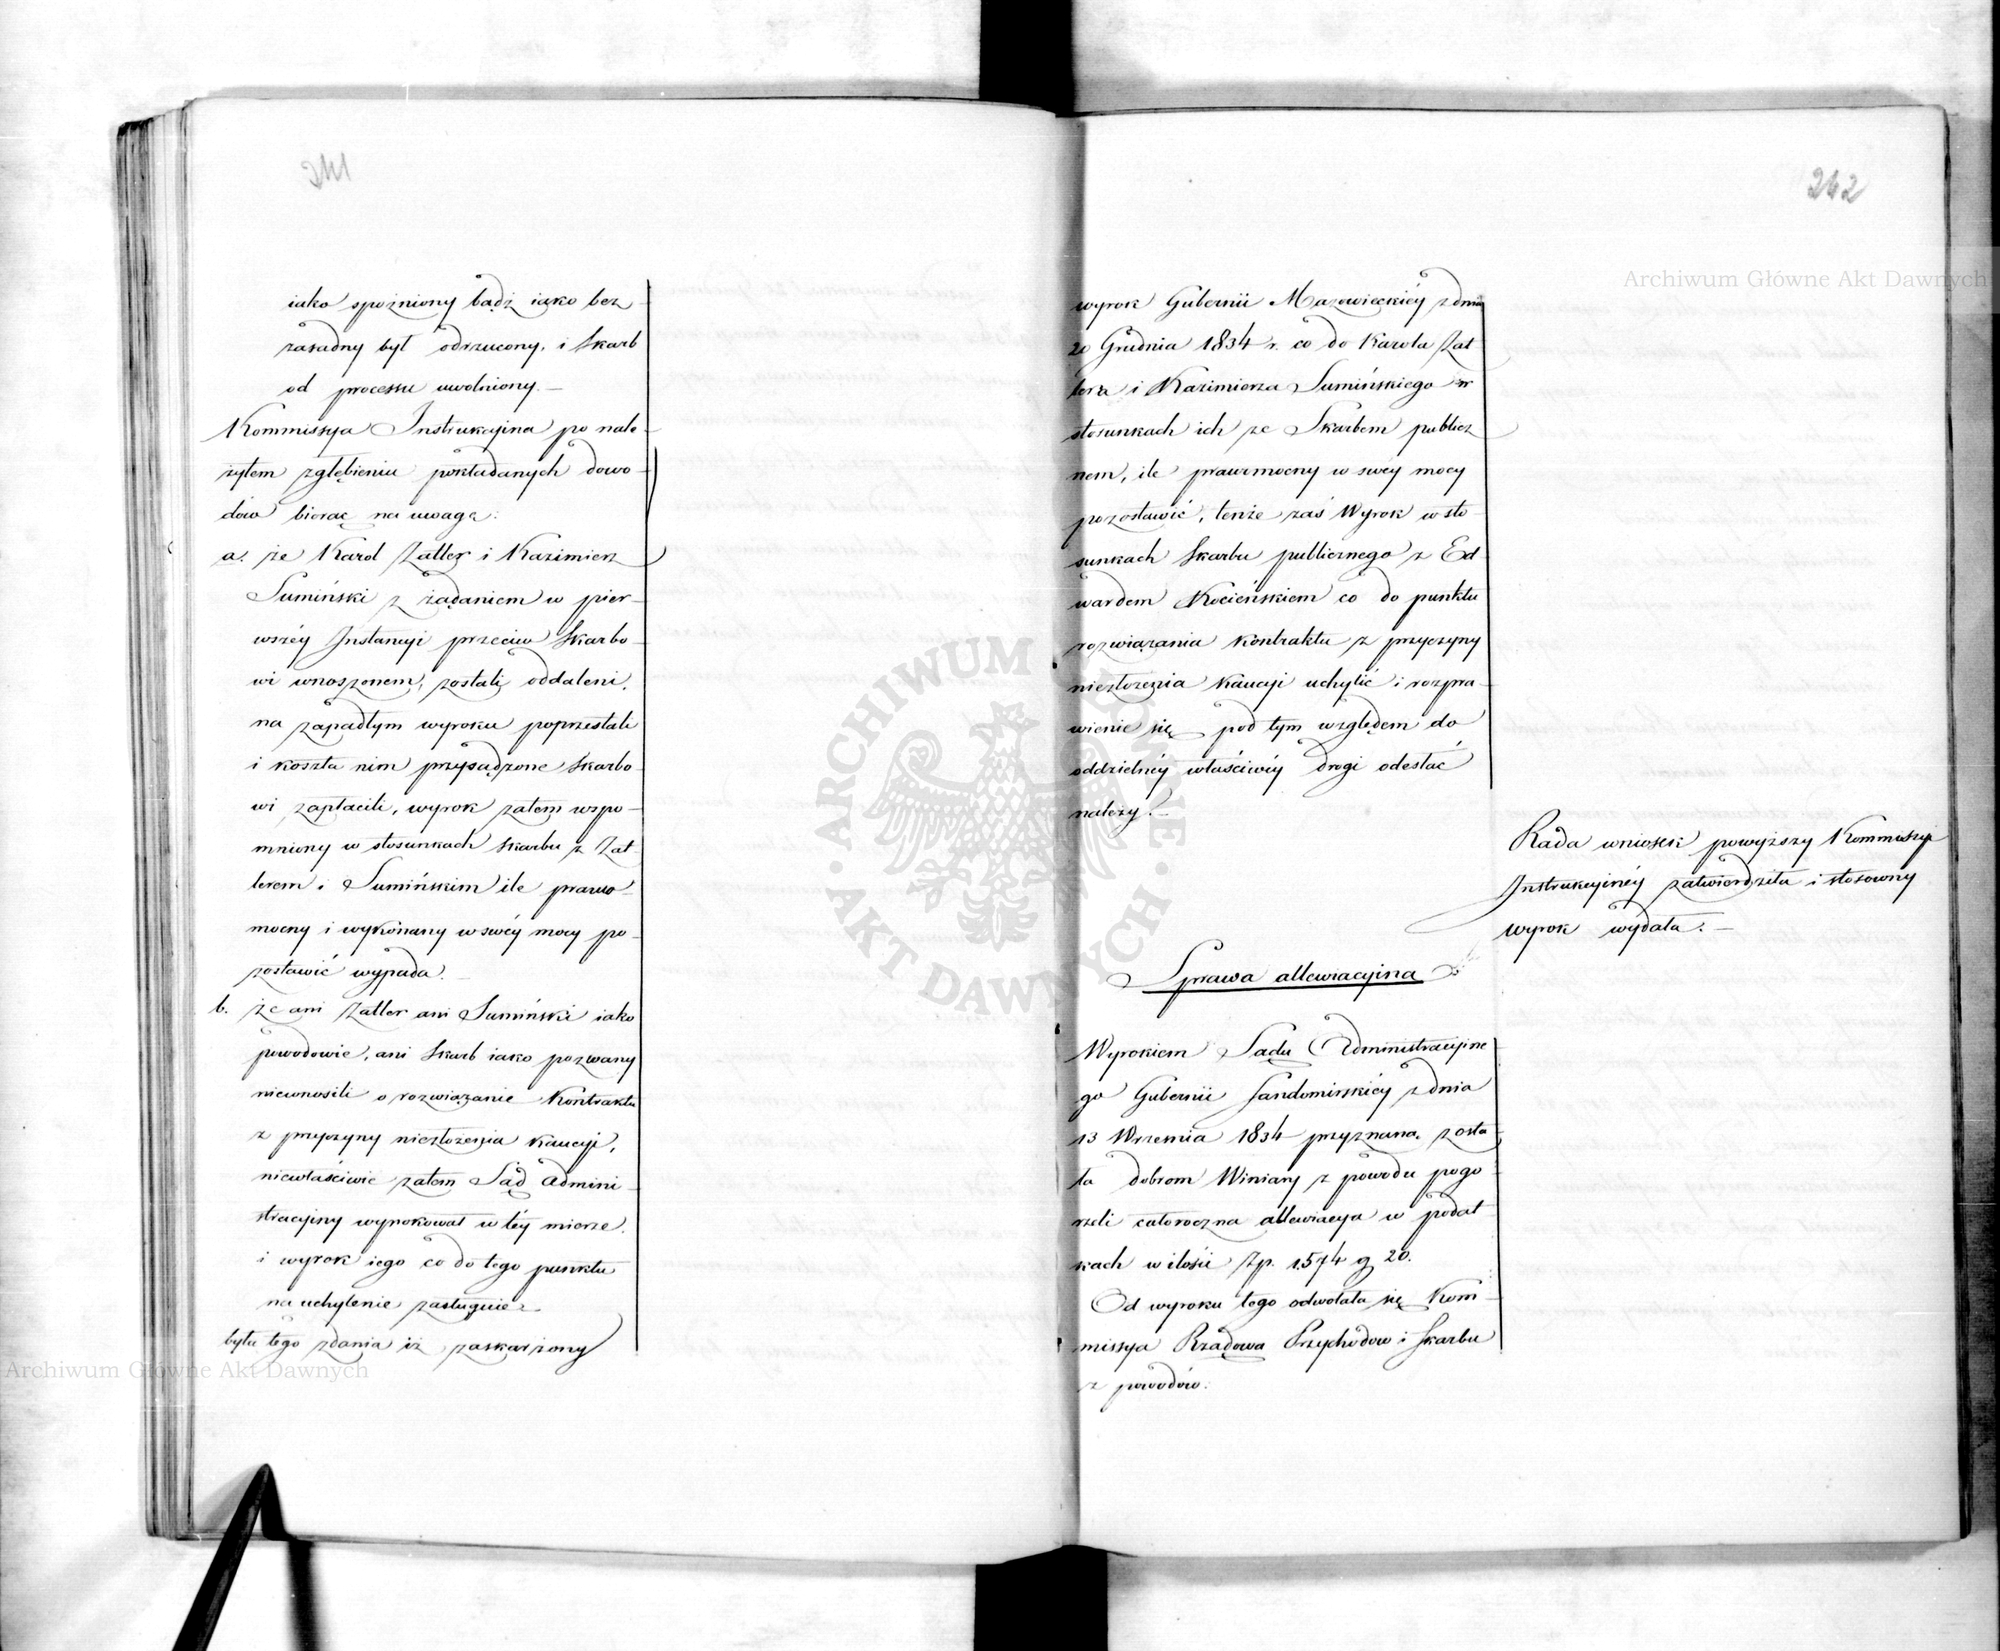 241
iako spoźniony bądź iako bez
zasadny był odrzucony, i Skarb
od processu uwolniony.—
Kommissya Instrukcyina po nale-
żytem zgłębieniu pokładanych dowo-
dów biorąc na uwagę:
a. że Karol Zatler i Kazimierz
Sumiński z żądaniem w pier-
wszéy Instancyi przeciw Skarbo-
wi wnoszonem, zostali oddaleni,
na zapadłym wyroku poprzestali
i koszta nim przysądzone Skarbo-
wi zapłacili, wyrok zatem wspo-
mniony w stosunkach Skarbu z Zat-
lerem i Sumińskim ile prawo-
mocny i wykonany w swéy mocy po-
zostawić wypada.—
b. że ani Zatler ani Sumiński iako
powodowie, ani Skarb iako pozwany
niewnosili o rozwiązanie Kontraktu
z przyczyny niezłożenia Kaucyi,
niewłaściwie zatem Sąd Admini-
stracyiny wyrokował w téy mierze.
i wyrok iego co do tego punktu
na uchylenie zasługuie
była tego zdania iż zaskarżony
242
wyrok Gubernii Mazowieckiéy z dnia
20 Grudnia 1834 r. co do Karola Zat-
lera i Kazimierza Sumińskiego w
stosunkach ich ze Skarbem publicz
nem, ile prawomocny w swéy mocy
pozostawić, tenże zaś Wyrok w sto-
sunkach Skarbu publicznego z Ed-
wardem Kocieńskiem co do punktu
rozwiązania Kontraktu z przyczyny
niezłożenia Kaucyi uchylić i rozpra-
wienie się pod tym względem do
oddzielnéy właściwéy drogi odesłać
należy.—
Rada wniosek powyższy Kommissyi
Instrukcyinéy zatwierdziła i stosowny
wyrok wydała.—
Sprawa allewiacyina
Wyrokiem Sądu Administracyine
go Gubernii Sandomirskiéy z dnia
13 Września 1834 przyznana zosta
ła dobrom Winiary z powodu pogo
rzeli całoroczna allewiacya w podat
kach w ilości Zp. 1,574 g 20.
Od wyroku tego odwołała się Kom-
missya Rządowa Przychodów i Skarbu
z powodów:
Archiwum Główne Akt Dawnych
Archiwum Główne Akt Dawnych
ARCHIWUM GŁÓWNE AKT DAWNYCH